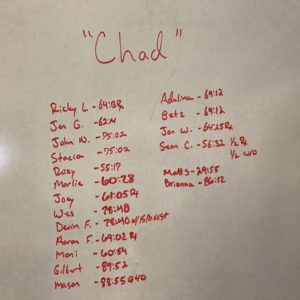 "Chad"
Ricky L - 64:13 Rx
Jen G. - 62:14
John W. - 75:02
Stacia - 75:02
Roxy - 55:17
Marlie - 60:28
Joey - 61:05 Rx
Wes - 78:40
Devin F. - 78:40 w/
Aaron F. - 69:02 Rx
Moni - 60:54
Gilbert - 89:52
Mason - 88:55 @40
Adelina - 69:12
Betz - 69:12
Jon W. - 64:25 Rx
Sean C. - 56:32 1/2 Rx
1/2 w/o
Matt S - 29:55
Brianna - 86:12